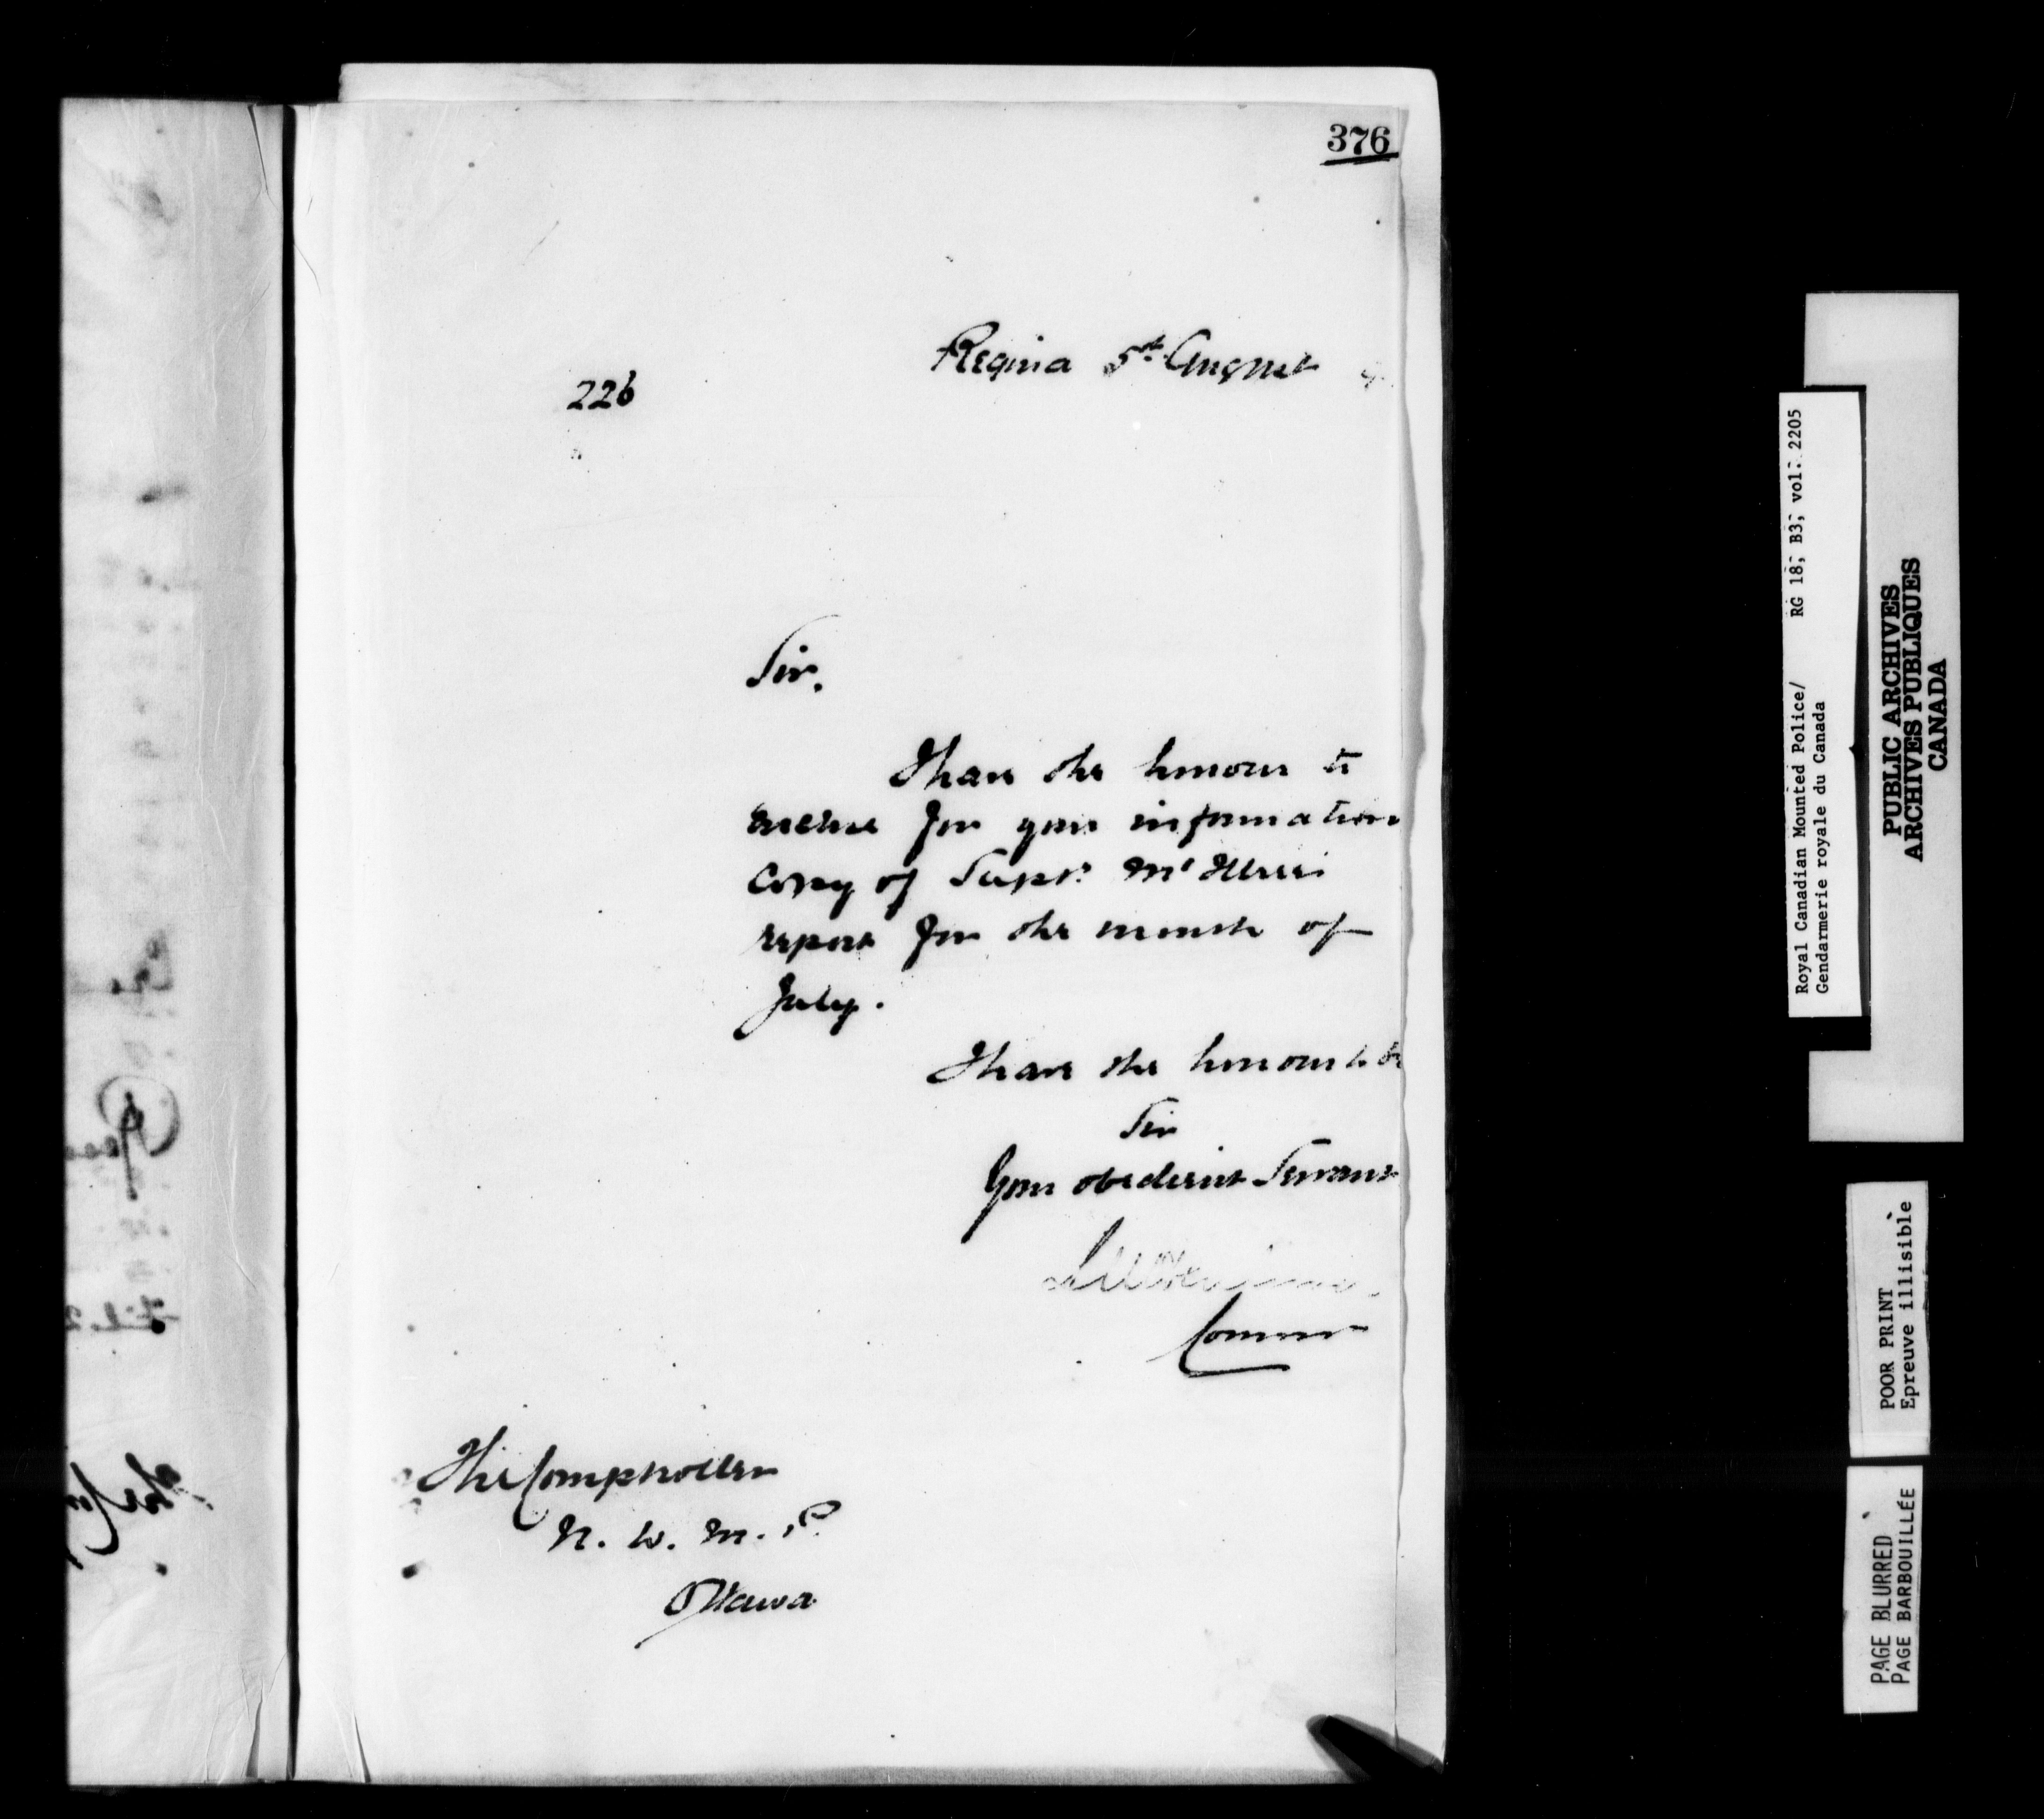 376
Regina 5th August
226
Sir.
I have the honour to
enclose for your information
copy of Supt. McIllree's
report for the month of
July.
I have the honour to be
Sir
Your obedient Servant
Commr
The Comptroller
N. W. M. P.
Ottawa
Royal Canadian Mounted Police/ RG 18, B3, vol. 2205
Gendarmerie royale du Canada
PUBLIC ARCHIVES
ARCHIVES PUBLIQUES
CANADA
POOR PRINT
Epreuve illisible
PAGE BLURRED
PAGE BARBOUILLÉE